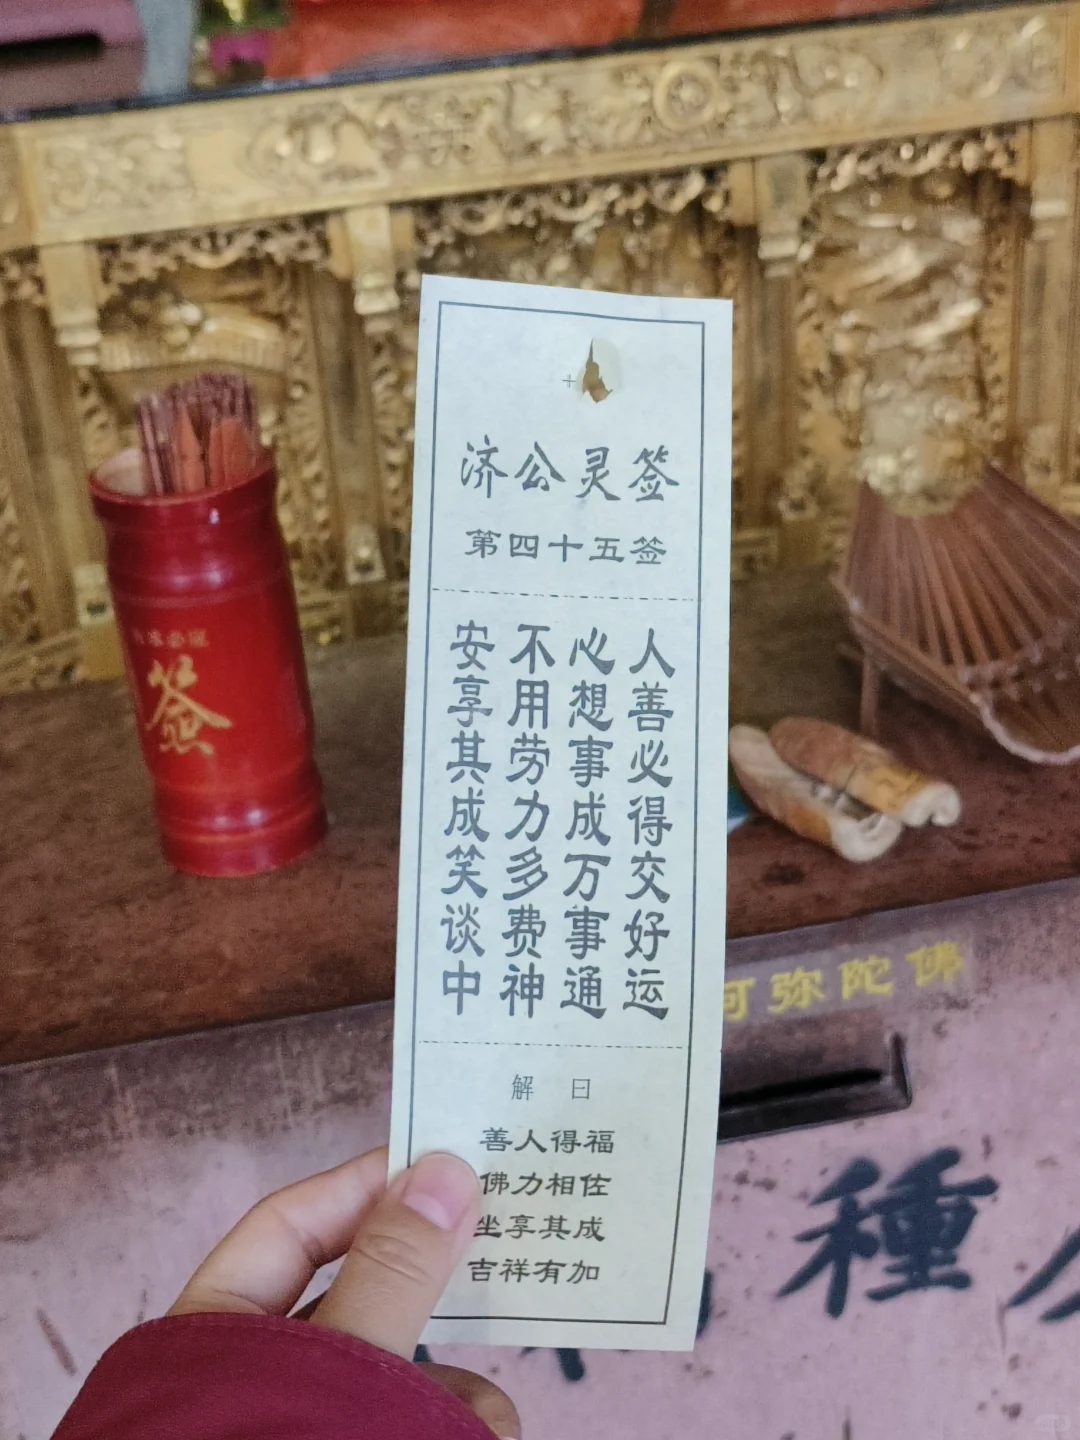 济公灵签
第四十五签
人善必得交好运
心想事成万事通
不用劳力多费神
安享其成笑谈中
解 曰
善人得福
佛力相佐
坐享其成
吉祥有加
签
阿弥陀佛
種